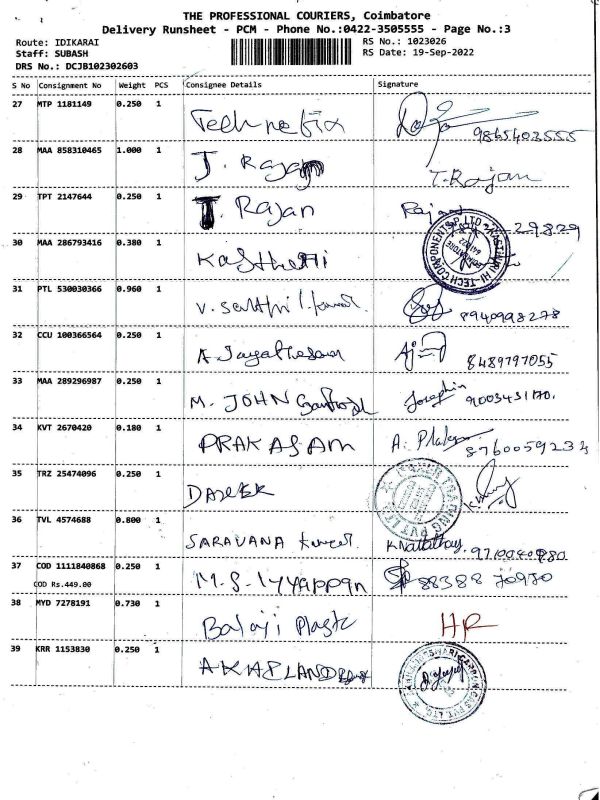 THE PROFESSIONAL COURIERS, Coimbatore
Delivery Runsheet - PCM - Phone No.:0422-3505555 - Page No.:3
Route: IDIKARAI
Staff: SUBASH
DRS No.: DCJB102302603
RS No.: 1023026
RS Date: 19-Sep-2022
S No Consignment No Weight PCS Consignee Details Signature
27 MTP 1181149 0.250 1 9865403555
28 MAA 858310465 1.000 1 J. Rajan T. Rajan
29 TPT 2147644 0.250 1 T. Rajan 29829
30 MAA 286793416 0.380 1
31 PTL 530030366 0.960 1 8940998278
32 CCU 100366564 0.250 1 8489797055
33 MAA 289296987 0.250 1 M. JOHN Josephin
34 KVT 2670420 0.180 1 PRAKASAM A.
35 TRZ 25474096 0.250 1
36 TVL 4574688 0.800 1 SARAVANA
37 COD 1111840868 0.250 1 M.S. Iyyappan
COD Rs.449.00
38 MYD 7278191 0.730 1 Balaji Plastic
39 KRR 1153830 0.250 1